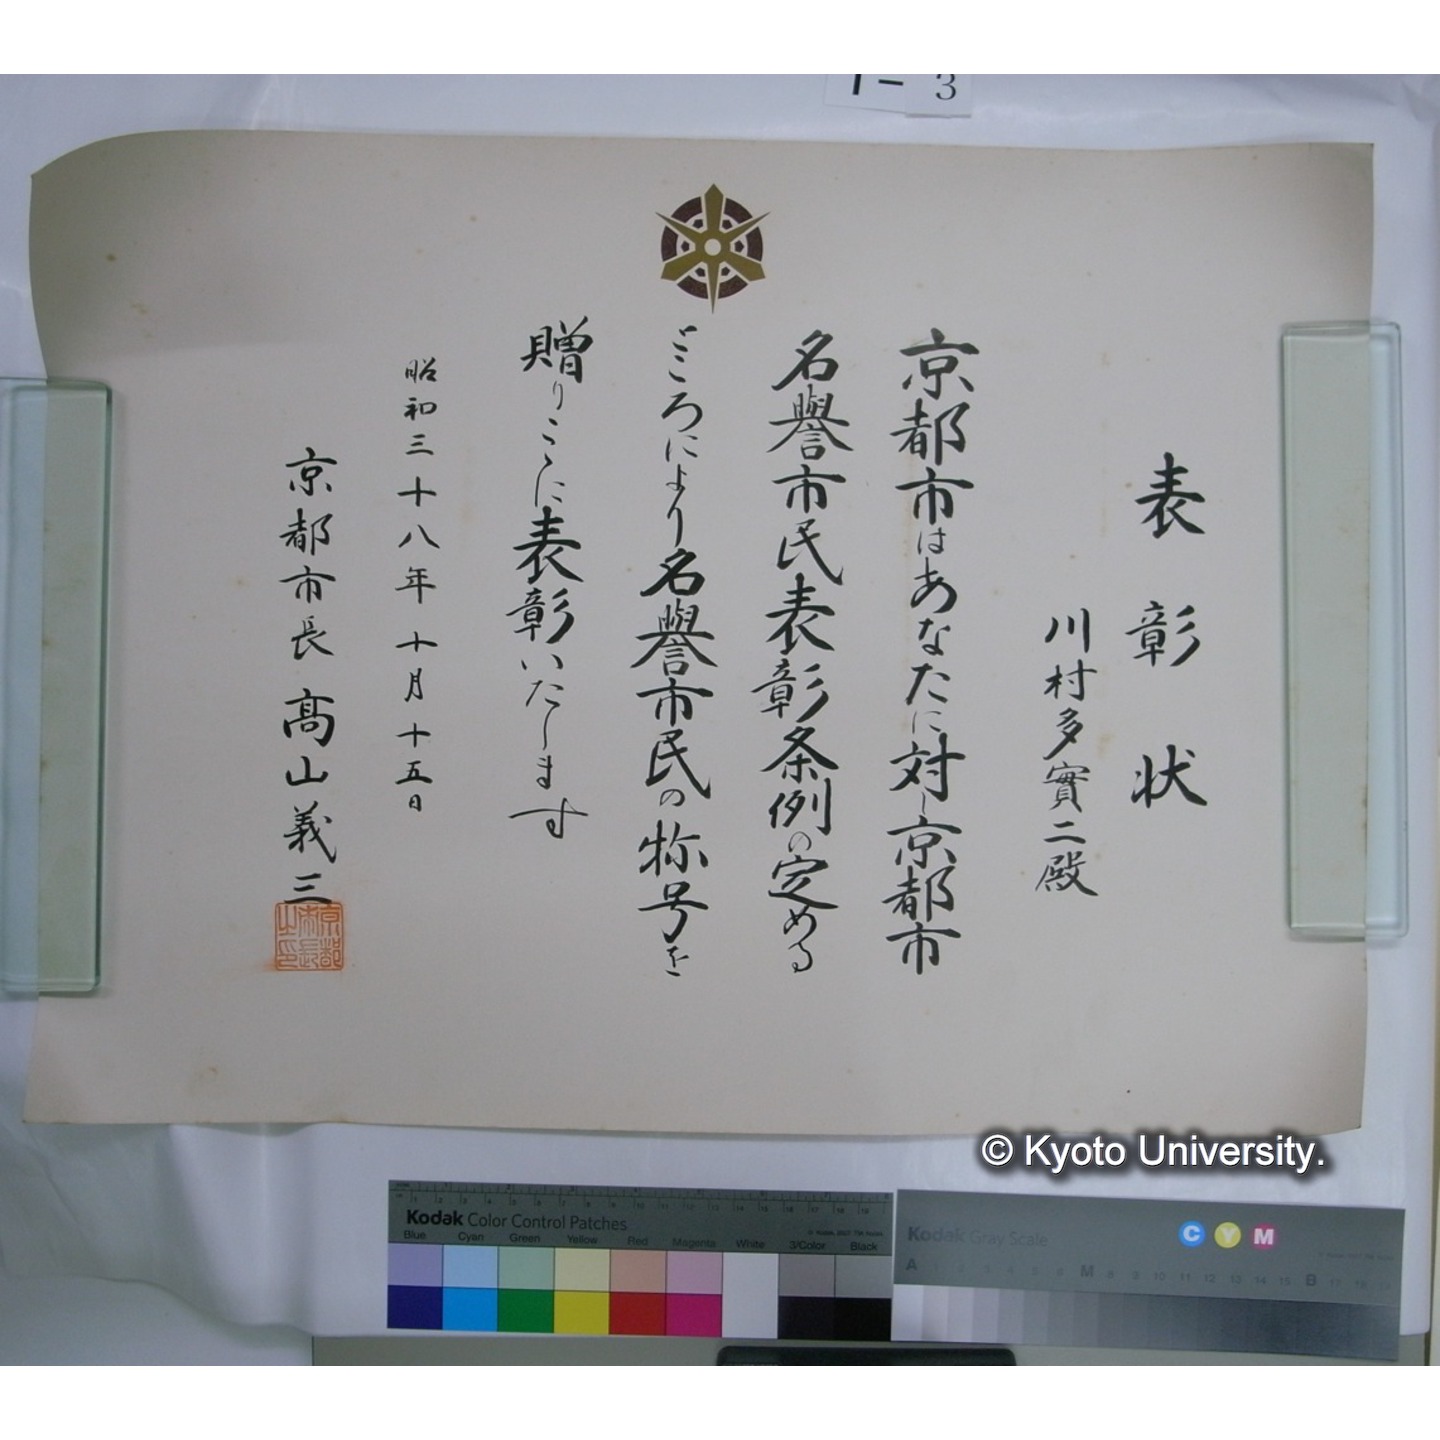 1-3
表彰状
川村多實二殿
京都市はあなたに対し京都市
名譽市民表彰条例の定める
ところにより名譽市民の称号を
贈りここに表彰いたします
昭和三十八年十月十五日
京都市長 髙山義三
京都市長之印
© Kyoto University.
Kodak Color Control Patches
Blue Cyan Green Yellow Red Magenta White 3/Color Black
Kodak Gray Scale
C Y M
A 1 2 3 4 5 6 M 8 9 10 11 12 13 14 15 B 17 18 19